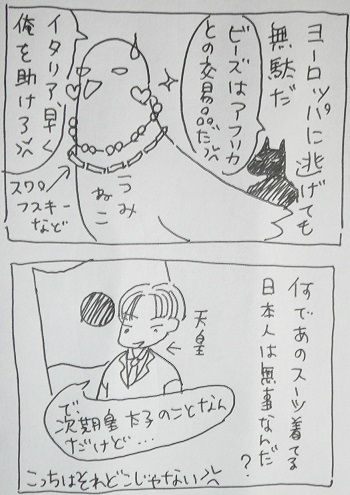 ヨーロッパに逃げても
無駄だ
ビーズはアフリカ
との交易品だ
イタリア、早く
俺を助けろ
うみ
ねこ
スワロ
フスキー
など
何であのスーツ着てる
日本人は無事なんだ
?
天皇
で、
次期皇太子のことなん
だけど…
こっちはそれどこじゃない